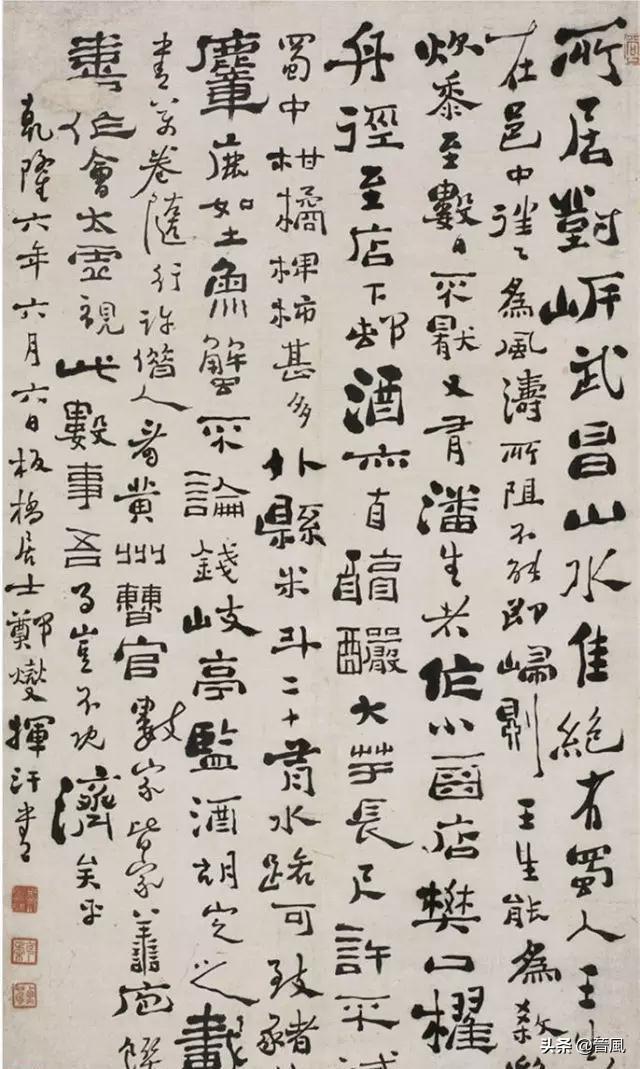 所居對岍武昌山水佳絕有蜀人王生
在邑中往々為風濤所阻不能即歸則王生能為殺雞
炊黍至數日不厭又有潘生者作小酉店樊口櫂
舟徑至店下邨酒亦自醇釅大芋長尺許不減
蜀中柑橘椑柿甚多外縣米斗二十有水路可致豬
麞鹿如土魚蟹不論錢岐亭監酒胡定之載
書萬卷隨行許借人看黃州曹官數家皆家善庖饌
喜作會太虛視此數事吾豈不既濟矣乎
乾隆六年六月六日板橋居士鄭燮揮汗書
头条 @晉風